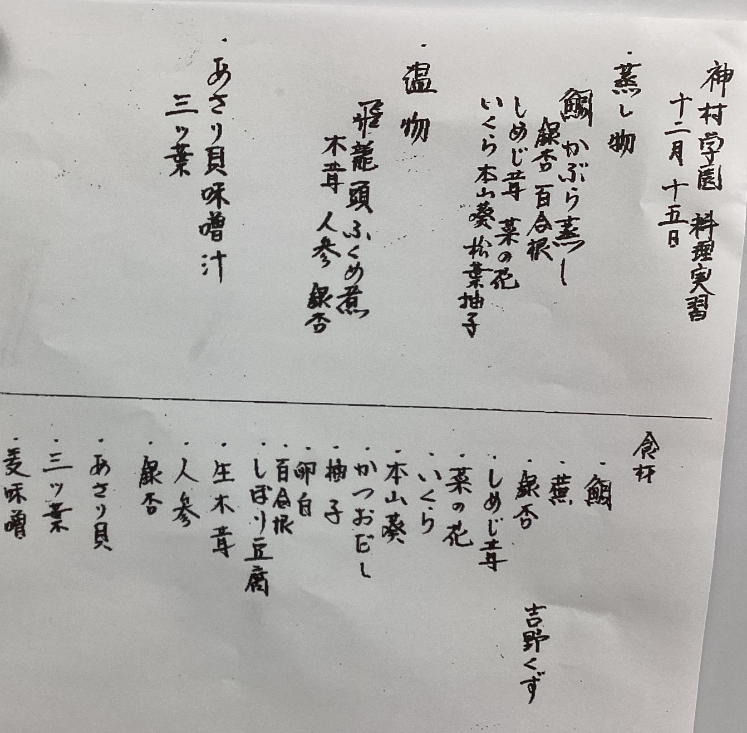 神村学園 料理実習
十二月 十五日
・蒸し物
鯛かぶら蒸し
銀杏 百合根
しめじ茸 菜の花
いくら 本山葵 松葉柚子
・温物
飛龍頭ふくめ煮
木茸 人参 銀杏
・あさり貝味噌汁
三ッ葉
食材
・鯛
・蕪
・銀杏
吉野くず
・しめじ茸
・菜の花
・いくら
・本山葵
・かつおだし
・柚子
・卵白
・百合根
・しぼり豆腐
・生木茸
・人参
・銀杏
・あさり貝
・三ッ葉
・麦味噌